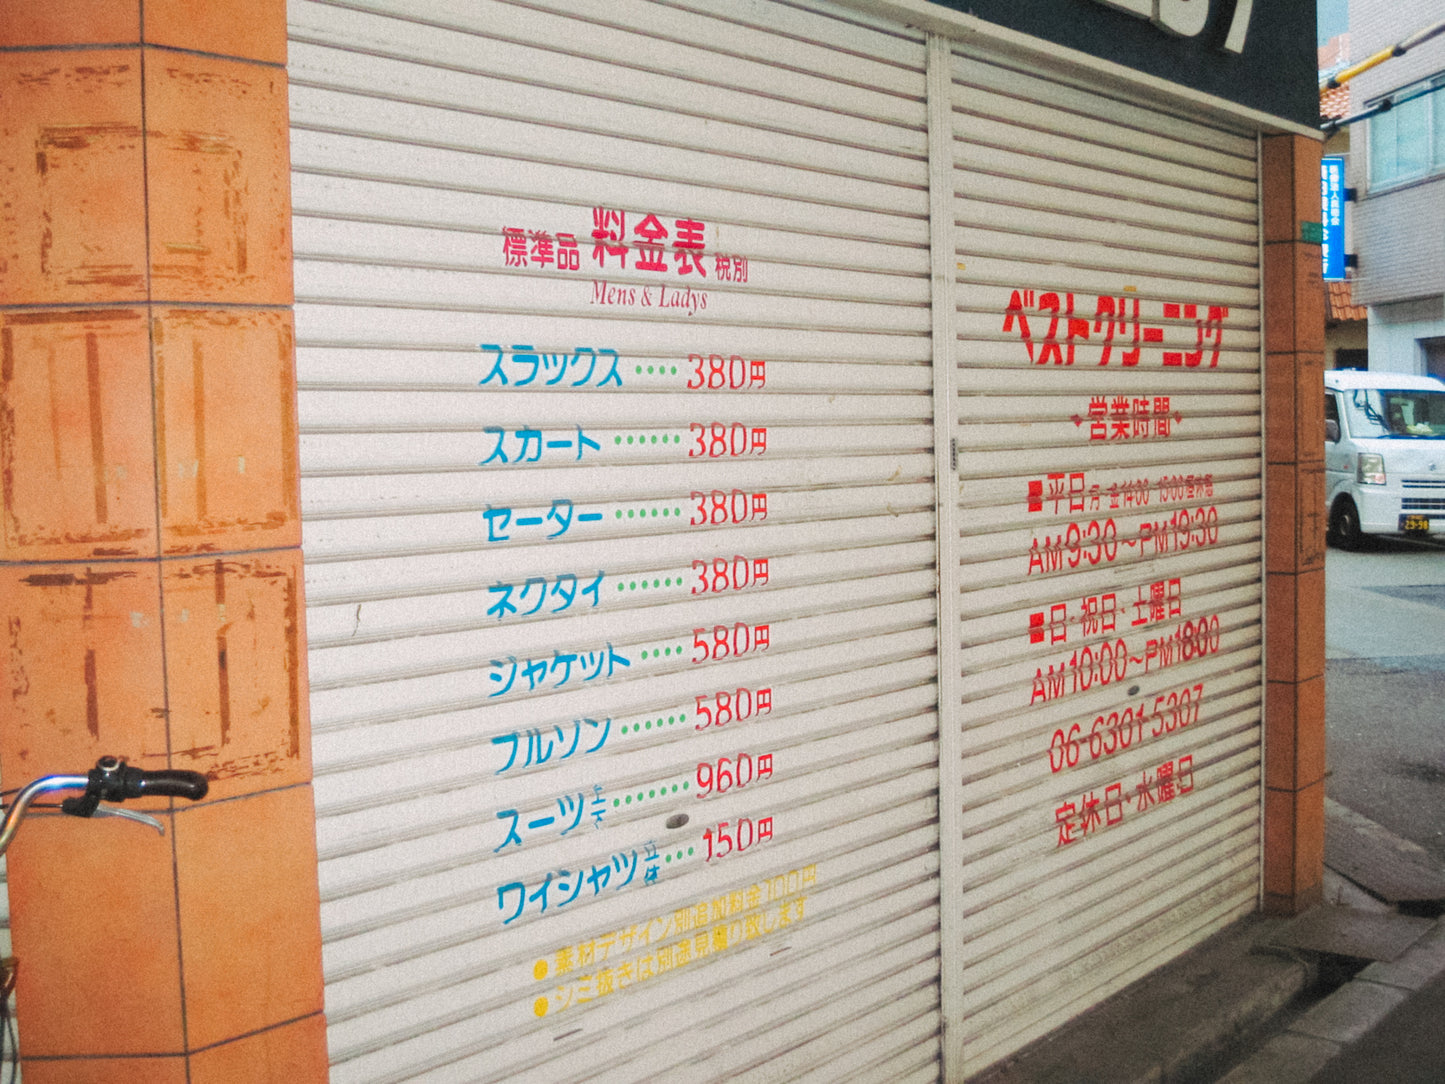 標準品 料金表 税別
Mens & Ladys
スラックス ････ 380円
スカート ･･････ 380円
セーター ･･････ 380円
ネクタイ ･･････ 380円
ジャケット ････ 580円
ブルゾン ･･････ 580円
スーツ上下 ･･･････ 960円
ワイシャツ立体 ･･･ 150円
●素材デザイン別追加料金100円
●シミ抜きは別途見積り致します
ベストクリーニング
営業時間
■平日 月・金
AM9:30～PM19:30
■日・祝日・土曜日
AM10:00～PM18:00
06-6301-5307
定休日・水曜日
29-98